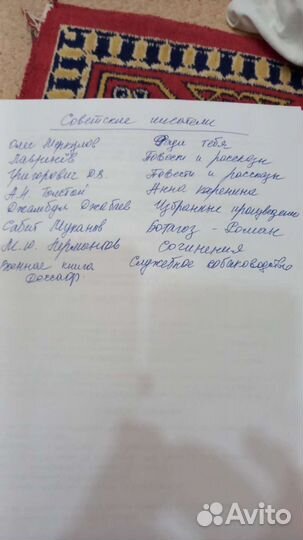 Советские писатели
Олес Меркулов Ради тебя
Лавренёв Повести и рассказы
Григорович Д.В. Повести и рассказы
А.Н. Толстой Анна каренина
Джамбул Джабаев Избранные произведения
Сабит Муканов Ботагоз - Роман
М.Ю. Лермонтов Сочинения
Военная книга Служебное собаководство
Avito